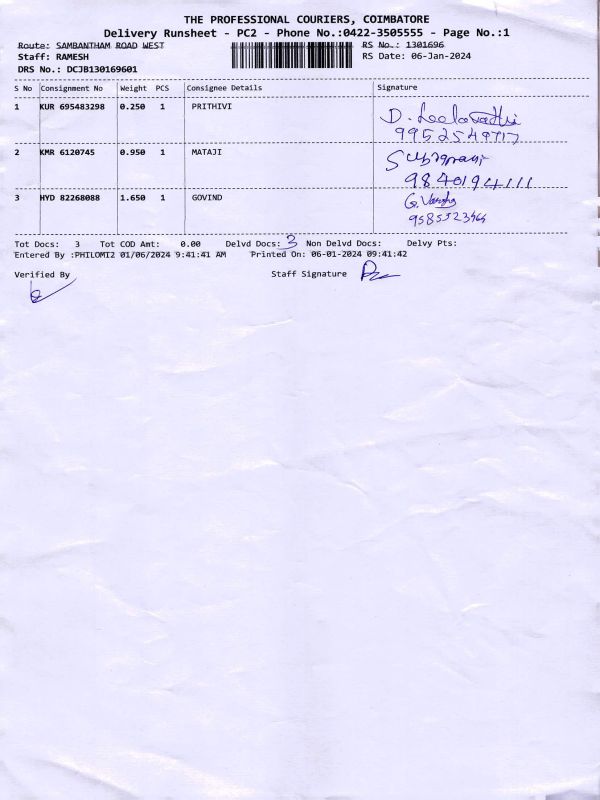 THE PROFESSIONAL COURIERS, COIMBATORE
Delivery Runsheet - PC2 - Phone No.:0422-3505555 - Page No.:1
Route: SAMBANTHAM ROAD WEST RS No.: 1301696
Staff: RAMESH RS Date: 06-Jan-2024
DRS No.: DCJB130169601
S No Consignment No Weight PCS Consignee Details Signature
1 KUR 695483298 0.250 1 PRITHIVI D. Leelavathi
2 KMR 6120745 0.950 1 MATAJI
9840194111
3 HYD 82268088 1.650 1 GOVIND G.
Tot Docs: 3 Tot COD Amt: 0.00 Delvd Docs: 3 Non Delvd Docs: Delvy Pts:
Entered By :PHILOMI2 01/06/2024 9:41:41 AM Printed On: 06-01-2024 09:41:42
Verified By Staff Signature